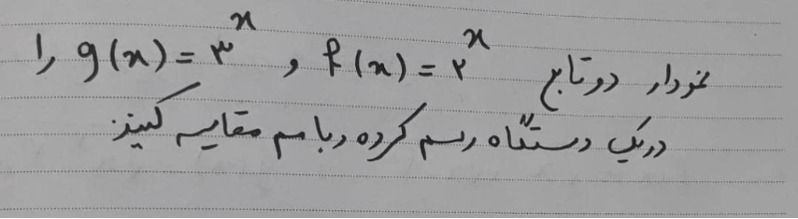 نمودار دو تابع f(x) = ۲^x و g(x) = ۳^x را
در یک دستگاه رسم کرده و با هم مقایسه کنید.